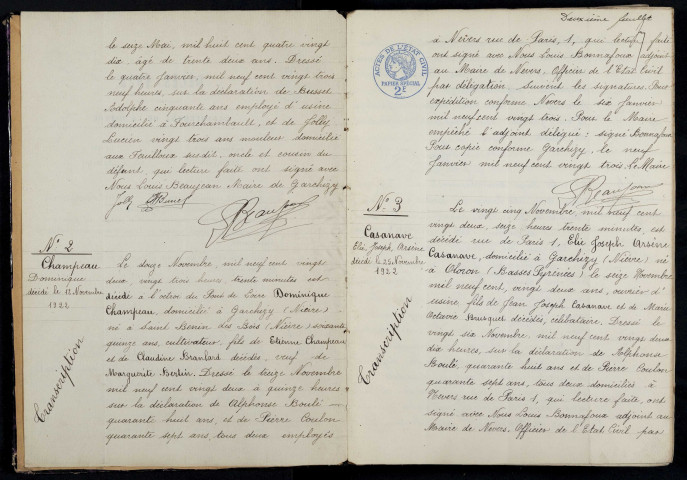 le seize Mai, mil huit cent quatre vingt
dix âgé de trente deux ans. Dressé
le quatre Janvier, mil neuf cent vingt trois
neuf heures, sur la déclaration de
Adolphe cinquante ans employé d'usine
domicilié à Fourchambault, et de Jolly
Lucien vingt trois ans mouleur domicilié
aux Feuilloux susdit, oncle et cousin du
défunt, qui lecture faite ont signé avec
Nous Louis Beaujean Maire de Garchizy
Jolly
Nº 2
Champeau
Dominique
décédé le 12 Novembre
1922
Transcription
Le douze Novembre, mil neuf cent vingt
deux vingt trois heures, trente minutes est
décédé à l'octroi du Pont de Loire Dominique
Champeau domicilié à Garchizy (Nièvre)
né à Saint Benin des Bois (Nièvre) soixante
quinze ans, cultivateur, fils de Etienne Champeau
et de Claudine Branlard décédés, veuf de
Marguerite Bertin. Dressé le seize Novembre
mil neuf cent vingt deux à quinze heures
sur la déclaration de Alphonse Boulé
quarante huit ans, et de Pierre Coulon
quarante sept ans, tous deux employés
Deuxième feuillet
à Nevers rue de Paris, 1, qui lecture faite
ont signé avec Nous Louis Bonnafoux adjoint
au Maire de Nevers, Officier de l'Etat Civil
par délégation. Suivent les signatures. Pour
expédition conforme Nevers le six Janvier
mil neuf cent vingt trois. Pour le Maire
empêché l'adjoint délégué : signé Bonnafoux
Pour copie conforme Garchizy, le neuf
Janvier mil neuf cent vingt trois. Le Maire
ACTES DE L'ÉTAT CIVIL
PAPIER SPÉCIAL
2F
Nº 3
Casanave
Elie, Joseph, Arsène
décédé le 25 Novembre
1922
Transcription
Le vingt cinq Novembre, mil neuf cent
vingt deux, seize heures trente minutes, est
décédé rue de Paris 1, Elie Joseph Arsène
Casanave, domicilié à Garchizy (Nièvre) né
à Oloron (Basses Pyrénées) le seize Novembre
mil neuf cent, vingt deux ans, ouvrier d'
usine fils de Jean Joseph Casanave et de Marie
Octavie Brusquet décédés, célibataire. Dressé le
vingt six Novembre, mil neuf cent vingt deux
dix heures, sur la déclaration de Alphonse
Boulé, quarante huit ans et de Pierre Coulon
quarante sept ans, tous deux domiciliés à
Nevers rue de Paris 1, qui lecture faite, ont
signé avec Nous Louis Bonnafoux adjoint au
Maire de Nevers, Officier de l'Etat Civil par